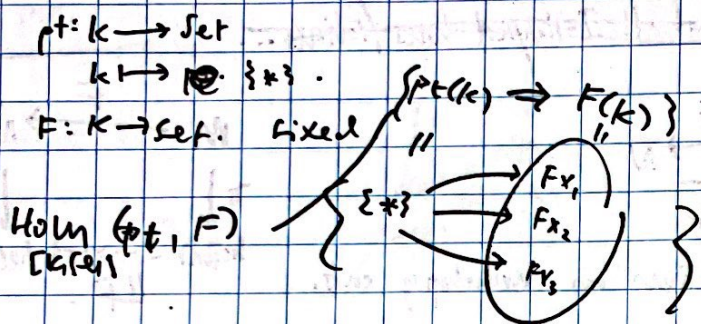 pt: K → Set
k ↦ {*}.
F: K → Set. fixed
{pt(k) ⇒ F(k)}
Hom (pt, F)
[K, Set]
{ {*}
Fx₁
Fx₂
Fx₃ }